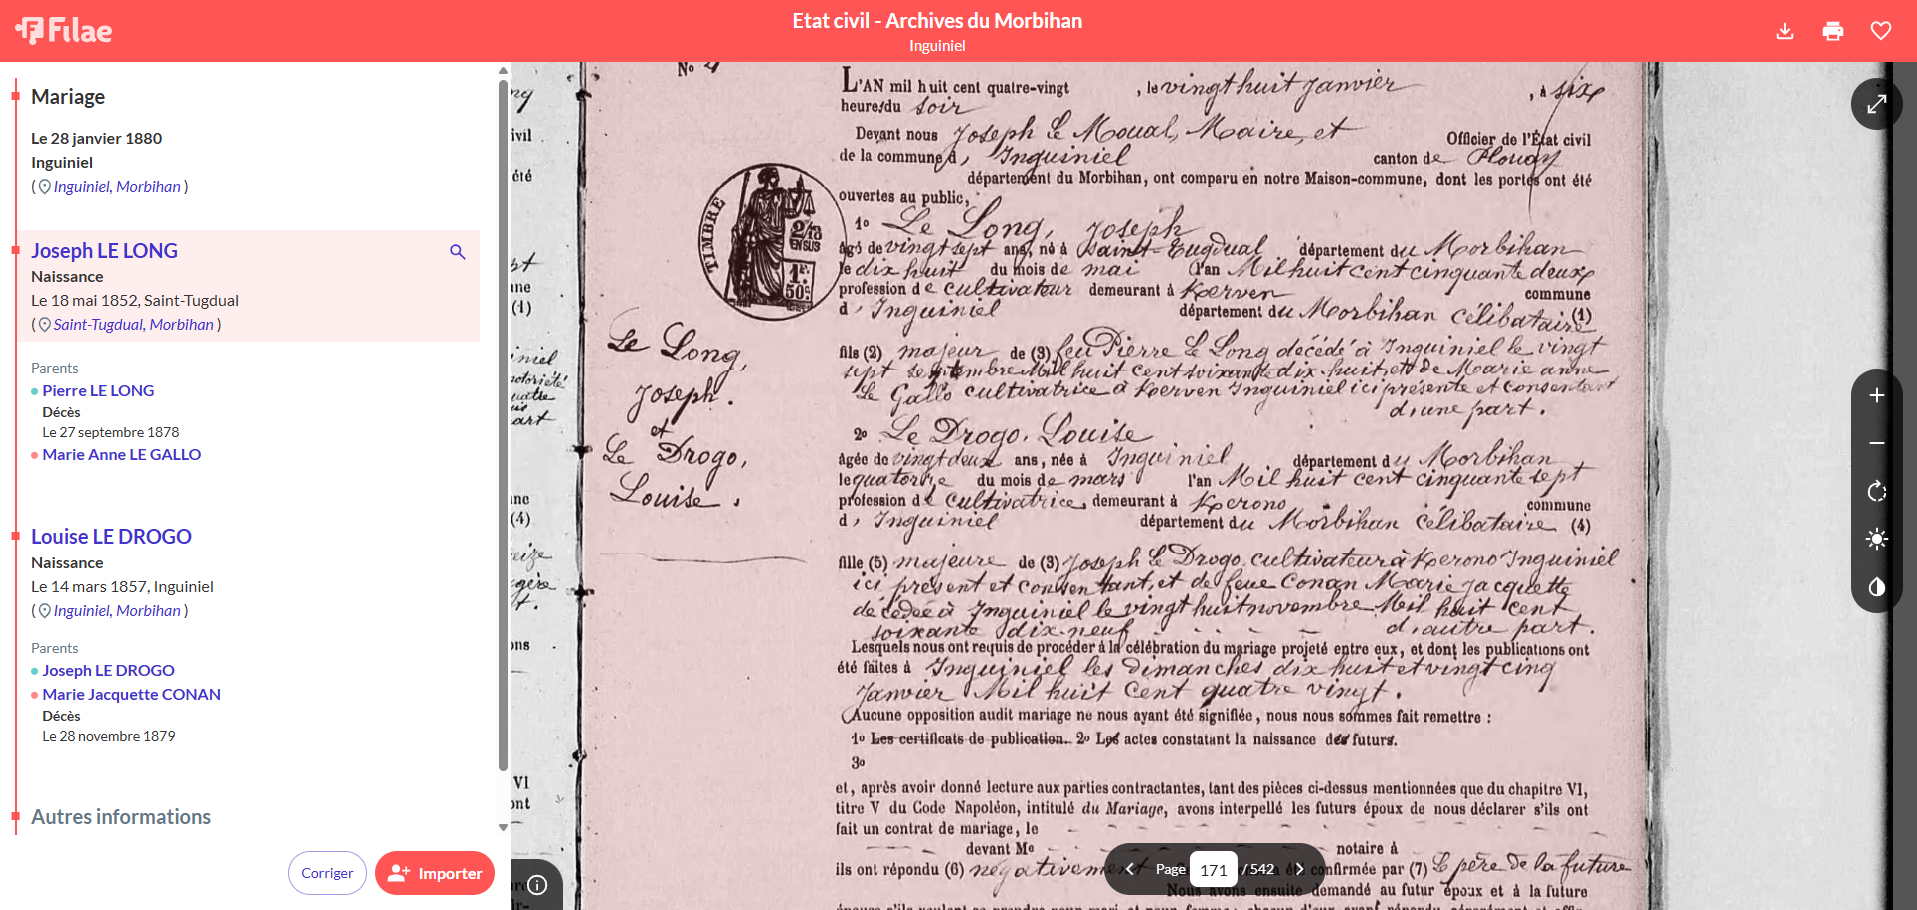 Filae
Etat civil - Archives du Morbihan
Inguiniel
Mariage
Le 28 janvier 1880
Inguiniel
( Inguiniel, Morbihan )
Joseph LE LONG
Naissance
Le 18 mai 1852, Saint-Tugdual
( Saint-Tugdual, Morbihan )
Parents
Pierre LE LONG
Décès
Le 27 septembre 1878
Marie Anne LE GALLO
Louise LE DROGO
Naissance
Le 14 mars 1857, Inguiniel
( Inguiniel, Morbihan )
Parents
Joseph LE DROGO
Marie Jacquette CONAN
Décès
Le 28 novembre 1879
Autres informations
Corriger
Importer
No 4
L'AN mil huit cent quatre-vingt , le vingt huit janvier , à six
heures du soir
Devant nous Joseph Le Moual, Maire, et Officier de l'État civil
de la commune d' Inguiniel canton de Plouay
département du Morbihan, ont comparu en notre Maison-commune, dont les portes ont été
ouvertes au public,
TIMBRE
2/10
EN SUS
1F.
50c.
1o Le Long, Joseph
âgé de vingt sept ans, né à Saint-Tugdual département du Morbihan
le dix huit du mois de mai l'an Mil huit cent cinquante deux
profession de cultivateur demeurant à Kerven commune
d' Inguiniel département du Morbihan célibataire (1)
Le Long,
Joseph.
et
Le Drogo,
Louise.
fils (2) majeur de (3) feu Pierre Le Long décédé à Inguiniel le vingt
sept septembre Mil huit cent soixante dix-huit, et de Marie anne
Le Gallo cultivatrice à Kerven Inguiniel ici présente et consentant
d'une part.
2o Le Drogo, Louise
âgée de vingt deux ans, née à Inguiniel département du Morbihan
le quatorze du mois de mars l'an Mil huit cent cinquante sept
profession de cultivatrice, demeurant à Kerono commune
d' Inguiniel département du Morbihan célibataire (4)
fille (5) majeure de (3) Joseph Le Drogo, cultivateur à Kerono Inguiniel
ici présent et consentant, et de feue Conan Marie jacquette
décédée à Inguiniel le vingt huit novembre Mil huit cent
soixante dix-neuf d'autre part.
Lesquels nous ont requis de procéder à la célébration du mariage projeté entre eux, et dont les publications ont
été faites à Inguiniel les dimanches dix huit et vingt cinq
Janvier Mil huit Cent quatre vingt.
Aucune opposition audit mariage ne nous ayant été signifiée, nous nous sommes fait remettre :
1o Les certificats de publication. 2o Les actes constatant la naissance des futurs.
3o
et, après avoir donné lecture aux parties contractantes, tant des pièces ci-dessus mentionnées que du chapitre VI,
titre V du Code Napoléon, intitulé du Mariage, avons interpellé les futurs époux de nous déclarer s'ils ont
fait un contrat de mariage, le
devant Me notaire à
ils ont répondu (6) négativement confirmée par (7) Le père de la future
Nous avons ensuite demandé au futur époux et à la future
Page 171 / 542